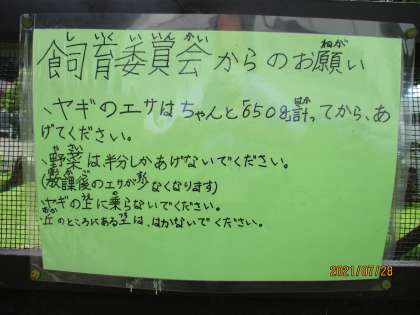 しいくいいんかい ねが
飼育委員会からのお願い
、ヤギのエサはちゃんと「650g」計ってから、あ
げてください。
、野菜は半分しかあげないでください。
(放課後のエサが少なくなります)
、ヤギの上に乗らないでください。
、丘のところにある土は、はかないでください。
2021/07/28